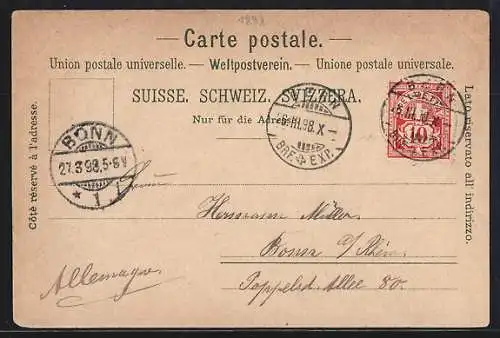 1898
— Carte postale. —
Union postale universelle. — Weltpostverein. — Unione postale universale.
SUISSE. SCHWEIZ. SVIZZERA.
Nur für die Adresse.
Côté réservé à l'adresse.
Lato riservato all' indirizzo.
BONN
27.3.98.5-6 V
* 1
LUZERN
III.98.X
BRF. EXP.
10
Herrn
Hermann Müller
Bonn a/Rhein
Poppelsd. Allee 80.
Allemagne